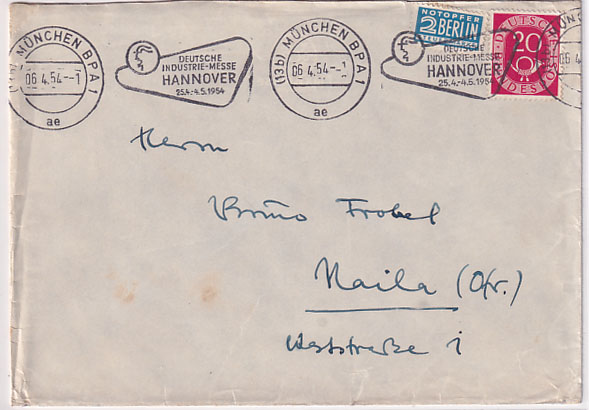 (13b) MÜNCHEN BPA 1
06.4.54.--1
ae
DEUTSCHE
INDUSTRIE-MESSE
HANNOVER
25.4.-4.5.1954
(13b) MÜNCHEN BPA 1
06.4.54.--1
ae
NOTOPFER
2 BERLIN
STEUERMARKE
DEUTSCHE
INDUSTRIE-MESSE
HANNOVER
25.4.-4.5.1954
DEUTSCHE
20
BUNDESPOST
Herrn
Bruno Frobel
Naila (Ofr.)
Weststraße 1